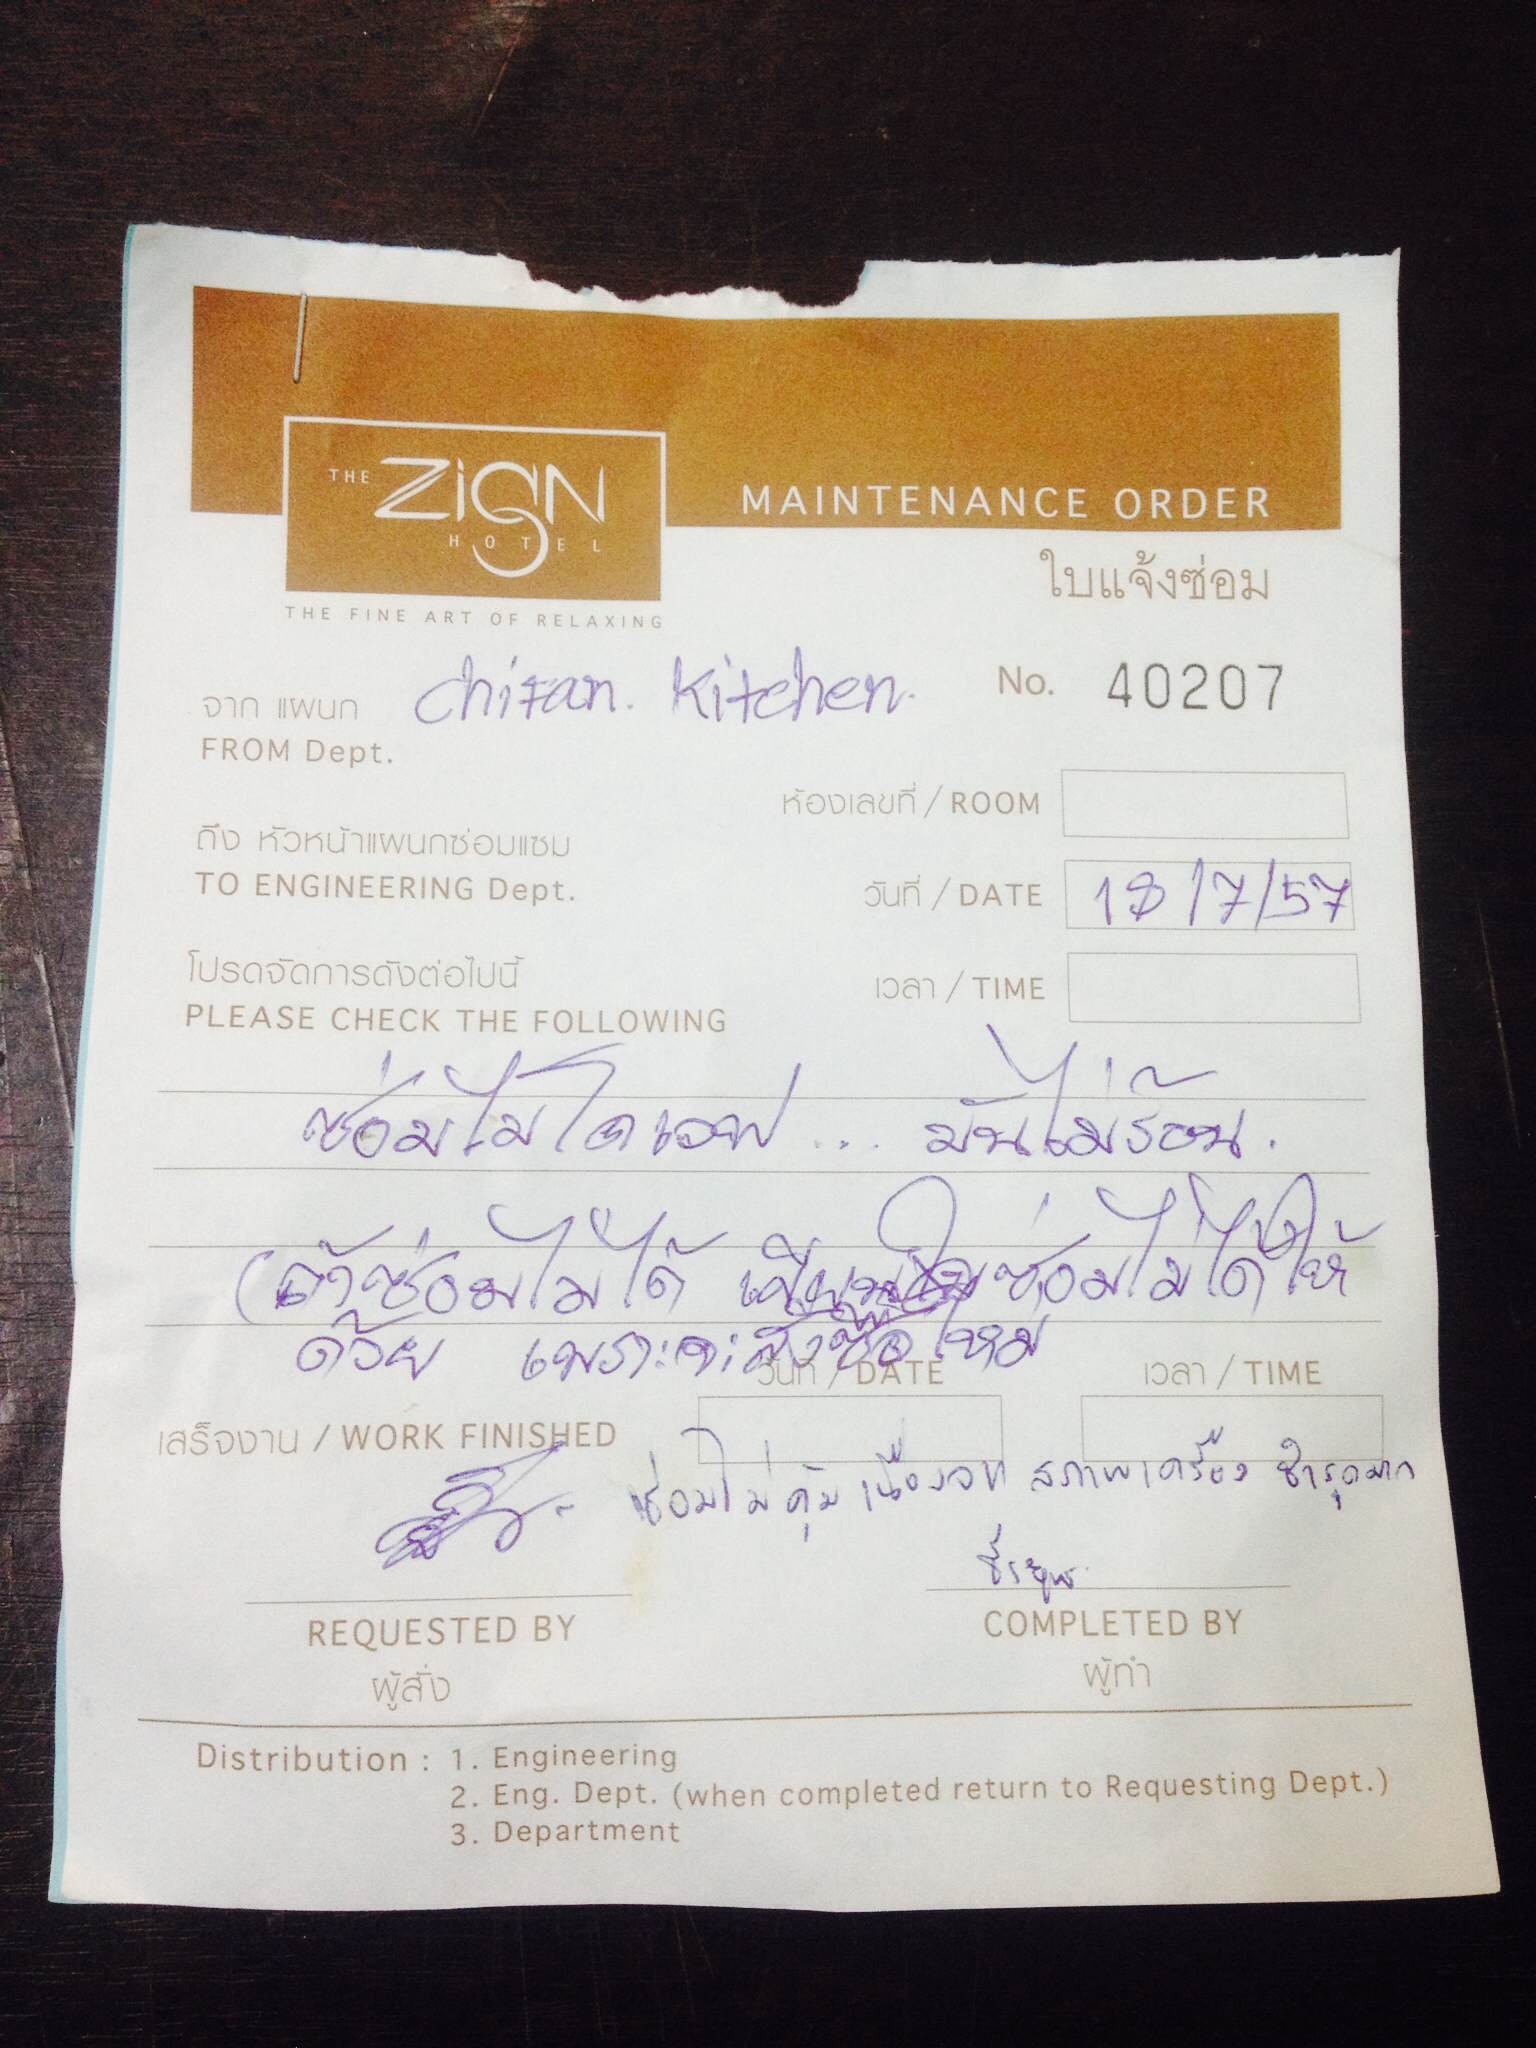 THE ZiGN
HOTEL
THE FINE ART OF RELAXING
MAINTENANCE ORDER
ใบแจ้งซ่อม
จาก แผนก chifan. Kitchen. No. 40207
FROM Dept.
ห้องเลขที่ / ROOM
ถึง หัวหน้าแผนกซ่อมแซม
TO ENGINEERING Dept.
วันที่ / DATE 18/7/57
โปรดจัดการดังต่อไปนี้
เวลา / TIME
PLEASE CHECK THE FOLLOWING
ซ่อมไมโคเวฟ ... มันไม่ร้อน.
(ถ้าซ่อมไม่ได้ เขียนใบซ่อมไม่ได้ให้
ด้วย เพราะจะสั่งซื้อใหม่
วันที่ / DATE เวลา / TIME
เสร็จงาน / WORK FINISHED
ซ่อมไม่คุ้ม เนื่องจาก สภาพเครื่อง ชำรุดมาก
REQUESTED BY COMPLETED BY
ผู้สั่ง ผู้ทำ
Distribution : 1. Engineering
2. Eng. Dept. (when completed return to Requesting Dept.)
3. Department